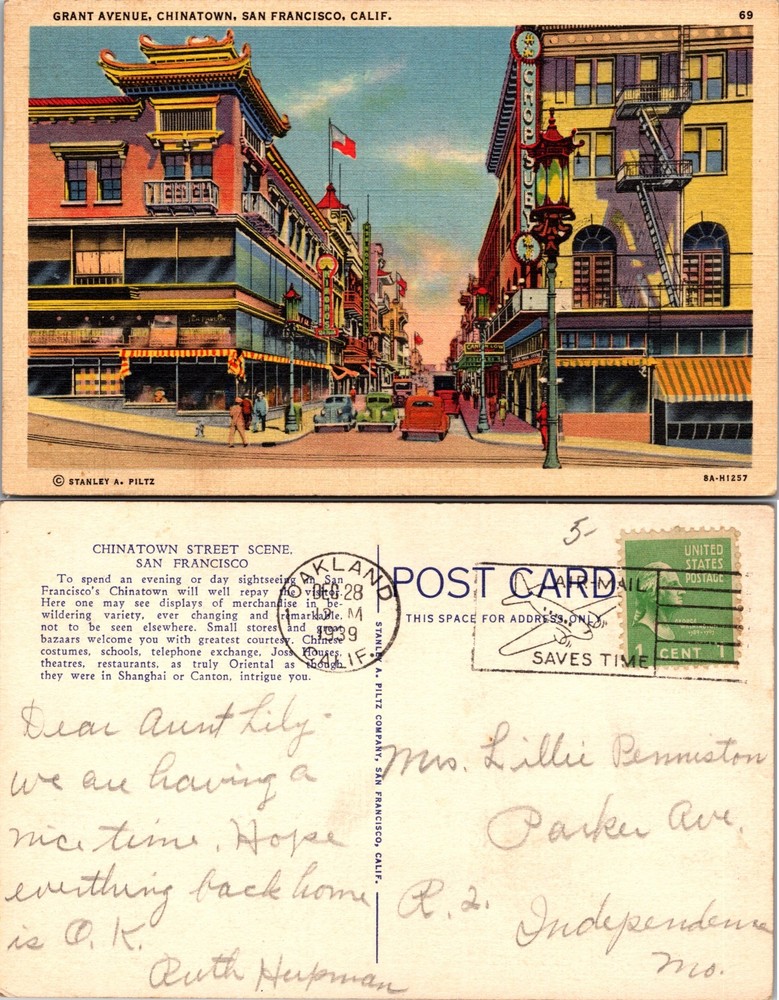 GRANT AVENUE, CHINATOWN, SAN FRANCISCO, CALIF.
69
CHOP SUEY
© STANLEY A. PILTZ
8A-H1257
CHINATOWN STREET SCENE,
SAN FRANCISCO
To spend an evening or day sightseeing in San
Francisco's Chinatown will well repay the visitor.
Here one may see displays of merchandise in be-
wildering variety, ever changing and remarkable,
not to be seen elsewhere. Small stores and great
bazaars welcome you with greatest courtesy. Chinese
costumes, schools, telephone exchange, Joss Houses,
theatres, restaurants, as truly Oriental as though
they were in Shanghai or Canton, intrigue you.
OAKLAND
DEC 28
1939
CALIF.
STANLEY A. PILTZ COMPANY, SAN FRANCISCO, CALIF.
5-
POST CARD
THIS SPACE FOR ADDRESS ONLY
AIR-MAIL
SAVES TIME
UNITED
STATES
POSTAGE
1 CENT 1
Dear Aunt Lily-
we are having a
nice time. Hope
everthing back home
is O.K.
Ruth
Mrs. Lillie Penniston
Parker Ave.
R. 2. Independence
Mo.